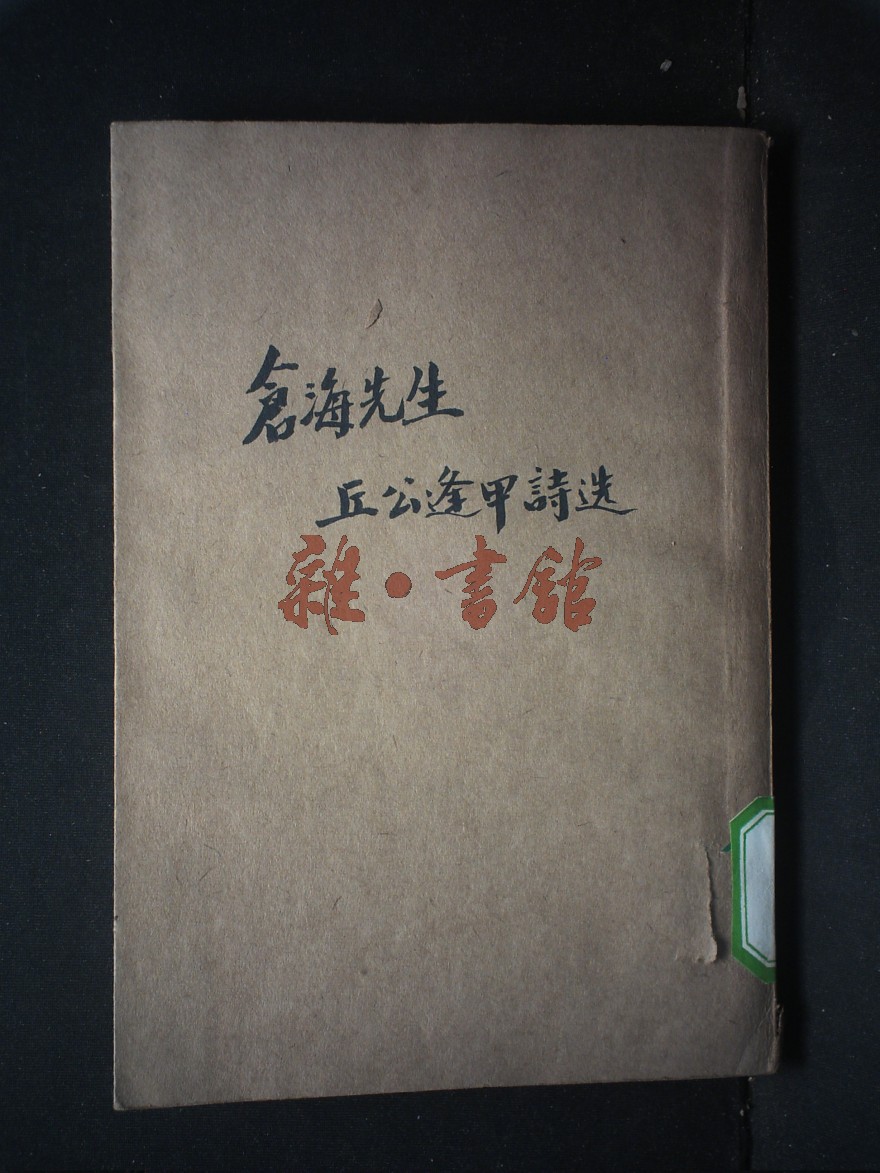 倉海先生
丘公逢甲詩选
雜·書館